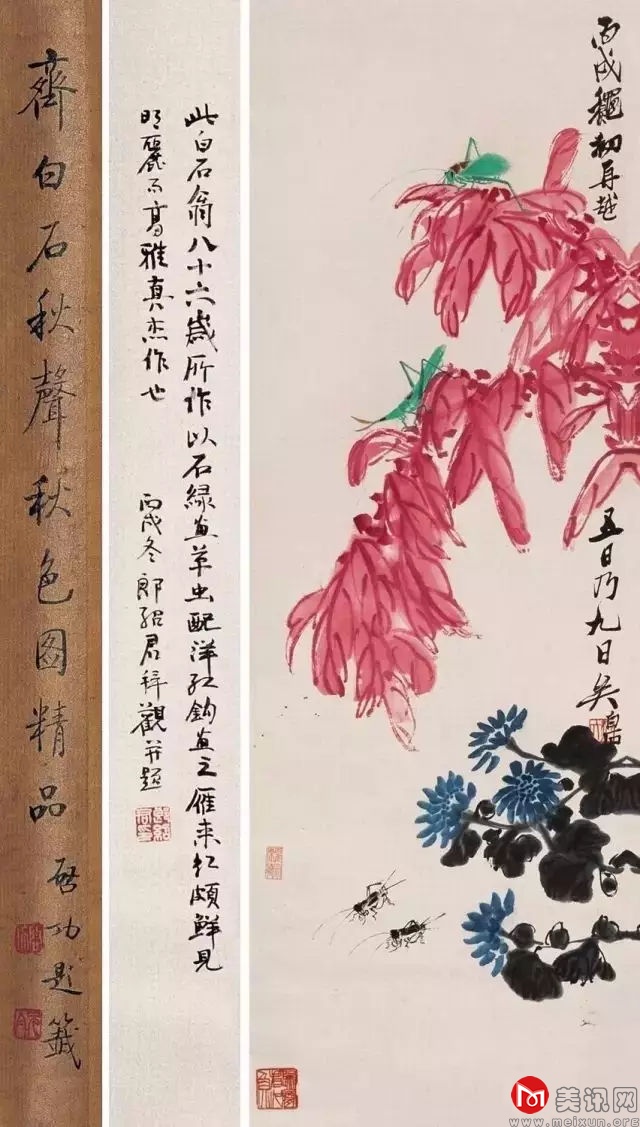 齊白石秋聲秋色圖精品
啓功題籤
此白石翁八十六歲所作以石緑画草虫配洋红鈎画之雁来红頗鮮見
明麗而高雅真杰作也
丙戌冬郎紹君拜觀并題
丙戌穐初再越
五日乃九日矣白石
美讯网
www.meixun.org